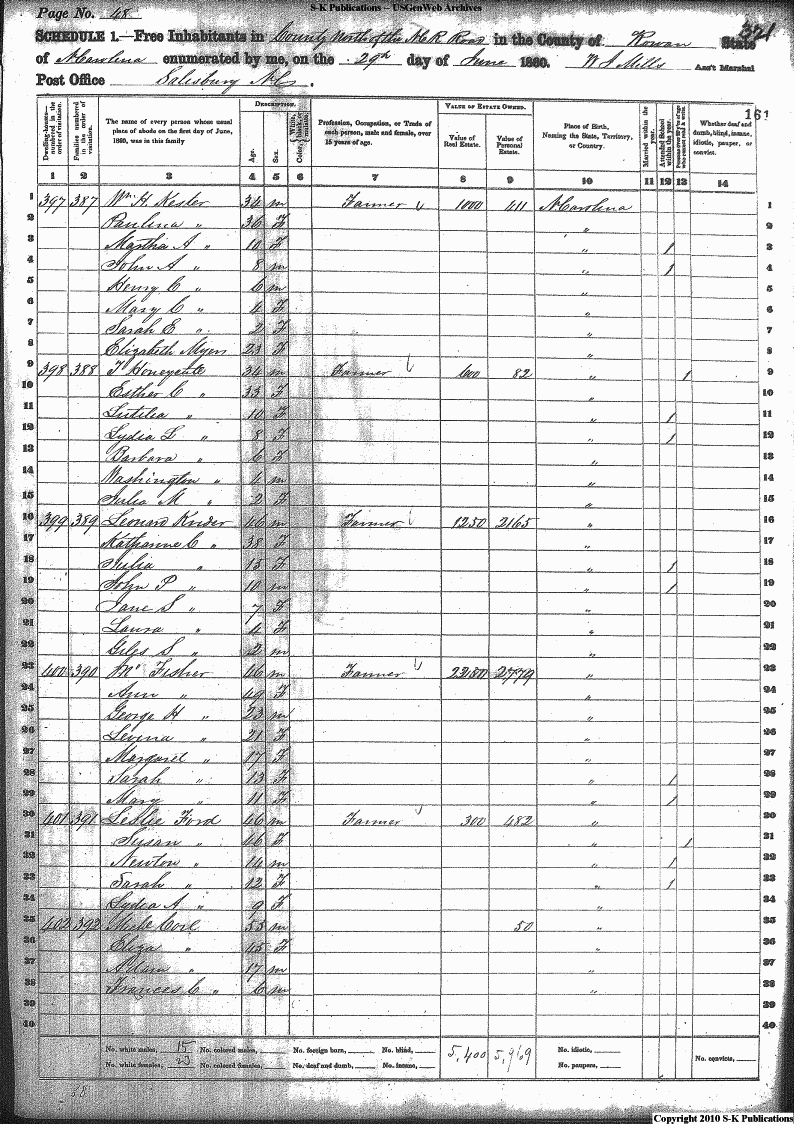 S-K Publications – USGenWeb Archives
Page No. 48
321
SCHEDULE 1.—Free Inhabitants in County North of the N C R Road in the County of Rowan State
of N Carolina enumerated by me, on the 29th day of June 1860. Ass't Marshal
Post Office Salisbury N C.
161
Dwelling-houses—numbered in the order of visitation.
Families numbered in the order of visitation.
The name of every person whose usual place of abode on the first day of June, 1860, was in this family
DESCRIPTION.
Age.
Sex.
Color,
Profession, Occupation, or Trade of each person, male and female, over 15 years of age.
VALUE OF ESTATE OWNED.
Value of Real Estate.
Value of Personal Estate.
Place of Birth, Naming the State, Territory, or Country.
Married within the year.
Attended School within the year.
Whether deaf and dumb, blind, insane, idiotic, pauper, or convict.
1 2 3 4 5 6 7 8 9 10 11 12 13 14
1 397 387 Wm H. Kesler 34 m Farmer 1000 411 N Carolina 1
2 Paulina " 36 F " 2
3 Martha A " 10 F " 1 3
4 John A " 8 m " 1 4
5 Henry C " 6 m " 5
6 Mary C " 4 F " 6
7 Sarah E " 2 F " 7
8 Elizabeth Myers 23 F " 8
9 398 388 T Honeycutt 34 m Farmer 600 82 " 1 9
10 Esther C " 33 F " 10
11 " 10 F " 1 11
12 Lydia L " 8 F " 1 12
13 Barbara " 6 F " 13
14 Washington " 4 m " 14
15 Julia M " 2 F " 15
16 399 389 Leonard Krider 46 m Farmer 1250 2165 " 16
17 C " 38 F " 17
18 Julia " 13 F " 1 18
19 John P " 10 m " 1 19
20 Jane S " 7 F " 20
21 Laura " 4 F " 21
22 Giles S " 2 m " 22
23 400 390 Fisher 46 m Farmer 2779 " 23
24 Ann " 49 F " 24
25 George H " 23 m " 25
26 Levina " 21 F " 26
27 Margaret " 17 F " 27
28 Sarah " 13 F " 1 28
29 Mary " 11 F " 1 29
30 401 391 Leslie Ford 46 m Farmer 300 482 " 30
31 Susan " 46 F " 1 31
32 Newton " 14 m " 1 32
33 Sarah " 12 F " 1 33
34 Lydia A " 9 F " 34
35 402 392 55 m 50 " 35
36 Eliza " 45 F " 36
37 Adam " 17 m " 37
38 Frances C " 6 m " 38
39 39
40 40
No. white males, 15 No. colored males, No. foreign born, No. blind, 5,400 5,969 No. idiotic, No. convicts,
No. white females, 23 No. colored females, No. deaf and dumb, No. insane, No. paupers,
38
Copyright 2010 S-K Publications